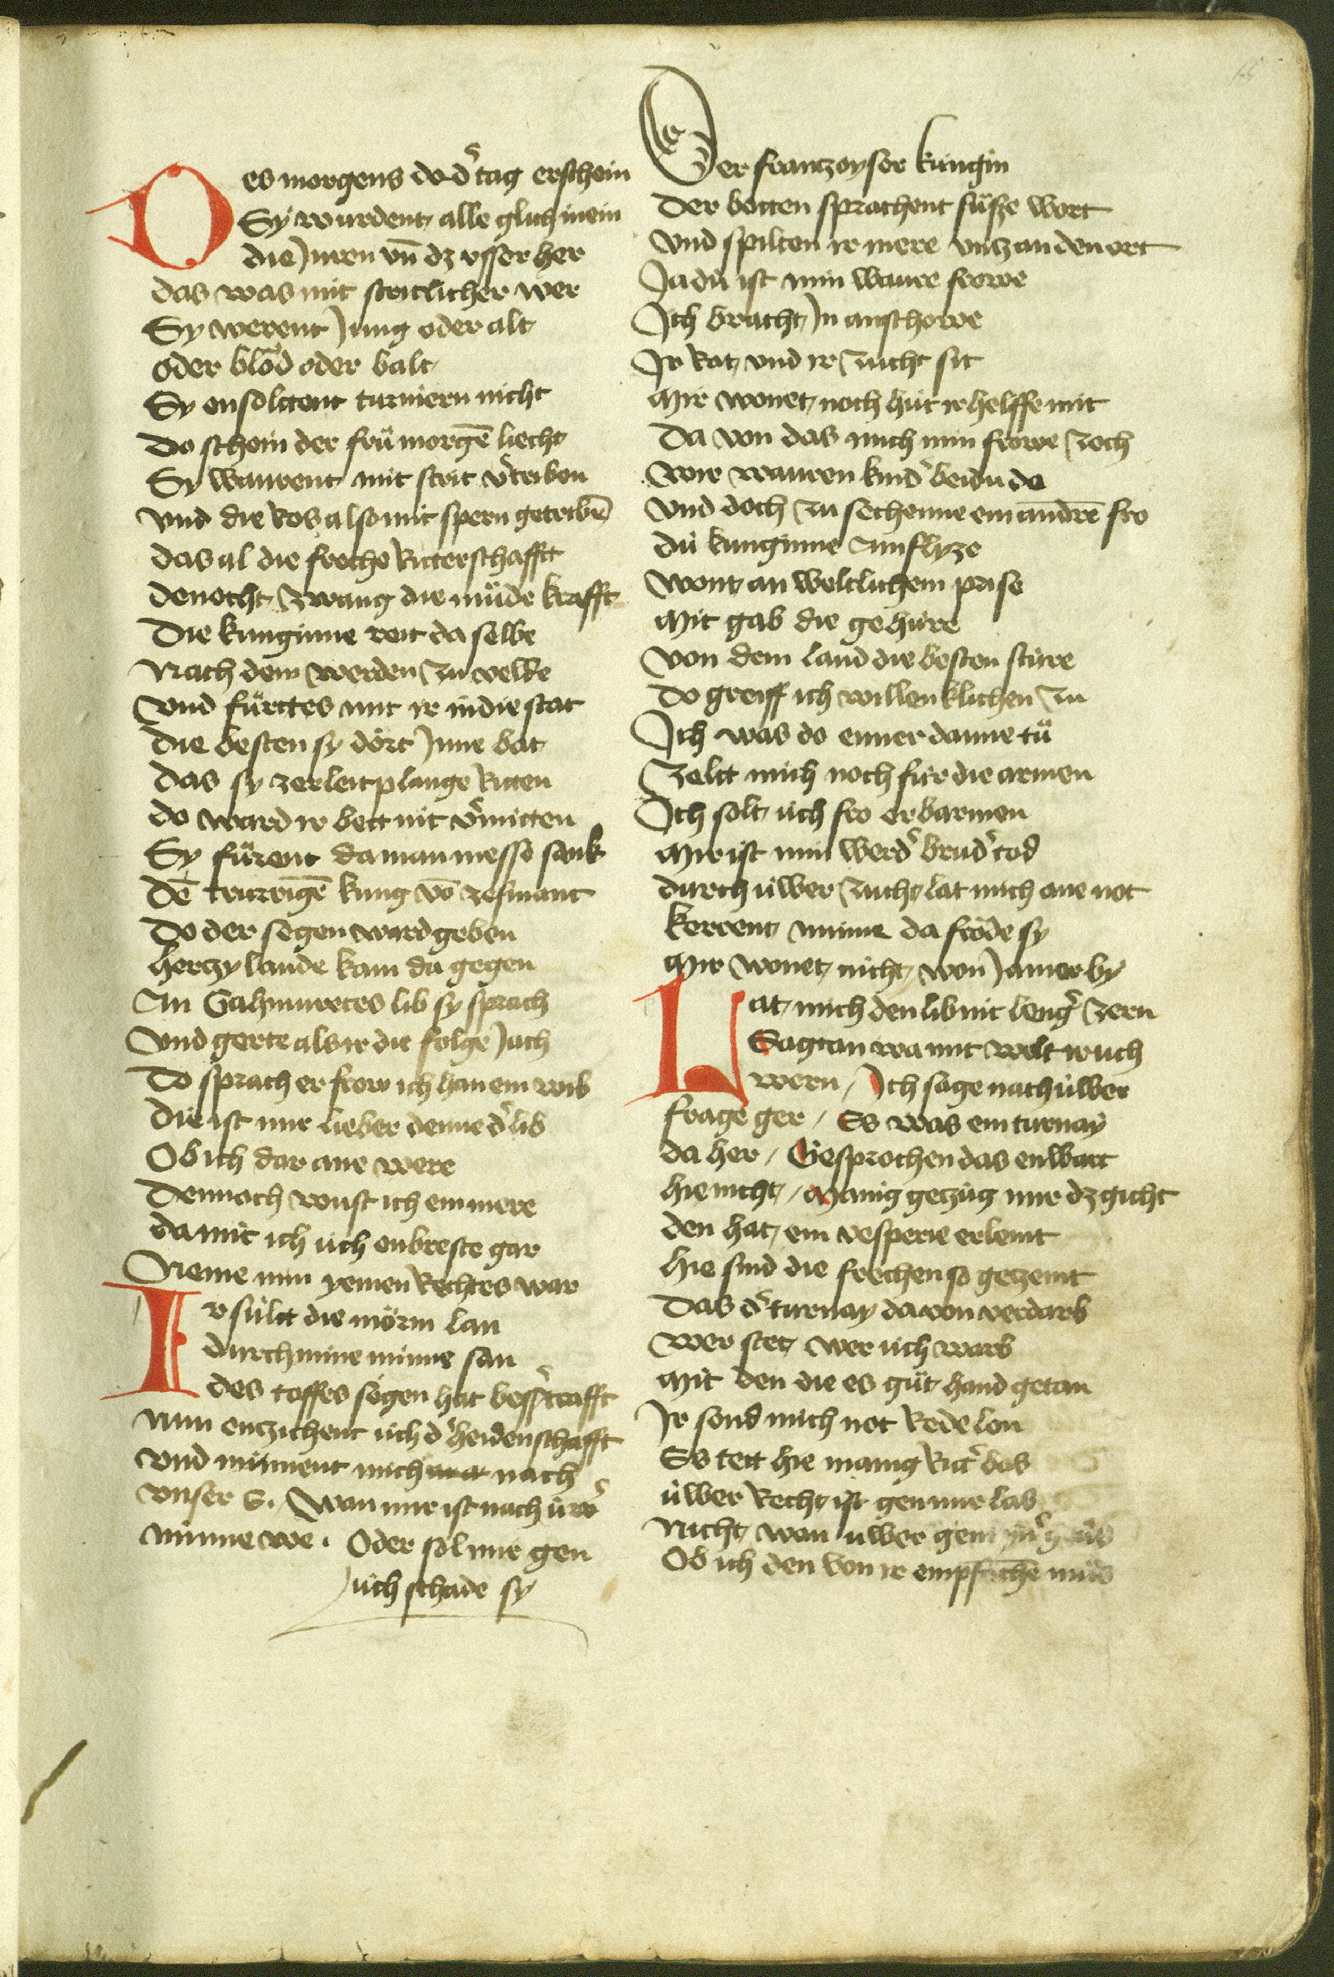 Des morgens do dˀ tag erschein
Sy wurdent alle glich inein
die Jnren vn̄ dz vsser her
das was mit stritlicher wer
Sy werent Jung oder alt
oder blo̊d oder balt
Sy ensolttent turniern nicht
Do schein der frü morgē liecht
Sy waurent mit strit vˀtriben
Vnd die Ros also mit spern getribē
das al die freche Ritterschafft
denocht zwang die müde krafft
Die kunginne reit da selbe
Nach dem werden zu velde
Vnd fürttes mit ir in die stat
Die besten sy dört Jnne bat
Das sy zer leitplange Ritten
do ward ir bett nit vˀmitten
Sy fürent da man messe sank
Dē trurrigē kung vō zesmant
Do der segen ward geben
herczylaude kam da gegen
An Gahmuretes lib sy sprach
Vnd gerte als ir die folge Jach
Do sprach er frow ich han ein wib
Die ist mir lieber denne dˀ lib
Ob ich dar ane were
Dennoch wust ich ein mere
da mit ich üch enbreste gar
Neme min yemen Rechtes war
Ir sültt die mörin lan
durch mine minne san
des toffes segen hat bessˀ crafft
Nun enzichent üch dˀ heidenschafft
Vnd minnent mich nach
vnser E. Wan mir ist nach ürˀ
minne we. Oder sol mir gen
üch schade sy
Der franczoyser kungin
Der botten sprachent süsze wort
Vnd spilten ir mere vntz an den ort
Ja dü ist min waure frowe
Jch bracht Jn anschowe
Jr Rat vnd ir zucht sit
Mir wonet noch hüt ir helffe mit
Da von das mich min frowe zoch
Wir wauren kindˀ beidu do
Vnd doch zu sechenne ein andrē fro
dü kunginne annflyze
Wont an weltlichem prise
Mit gab die gehüre
Von dem land die besten stüre
Do greiff ich willenklichen zu
Jch was do ermer danne tü
Zeltt mich noch für die armen
Jch solt üch fro erbarmen
Mir ist min werdˀ brudˀ tod
durch üwer zucht lat mich ane not
kerent minne da fröde sy
Mir wonet nicht won Jamer by
Lat mich den lib nit lengˀ zern
Sagt an wa mit wolt ir uch
wern / Jch sage nach üwer
frage ger / Es was ein turnay
da her / Gesprochen das enwart
hie nicht / Manig gezüg mir dz gicht
den hat ein vesperie erlemt
hie sind die frechen so gezemt
Das dˀ turnay da von verdarb
Wer stet wer üch warb
Mit den die es güt hand getan
Jr sond mich not Rede lon
Es tett hie manig Rittˀ das
üwer Recht ist gen mir las
Nicht wan üwer gem
Ob ich den von ir empfachē müs